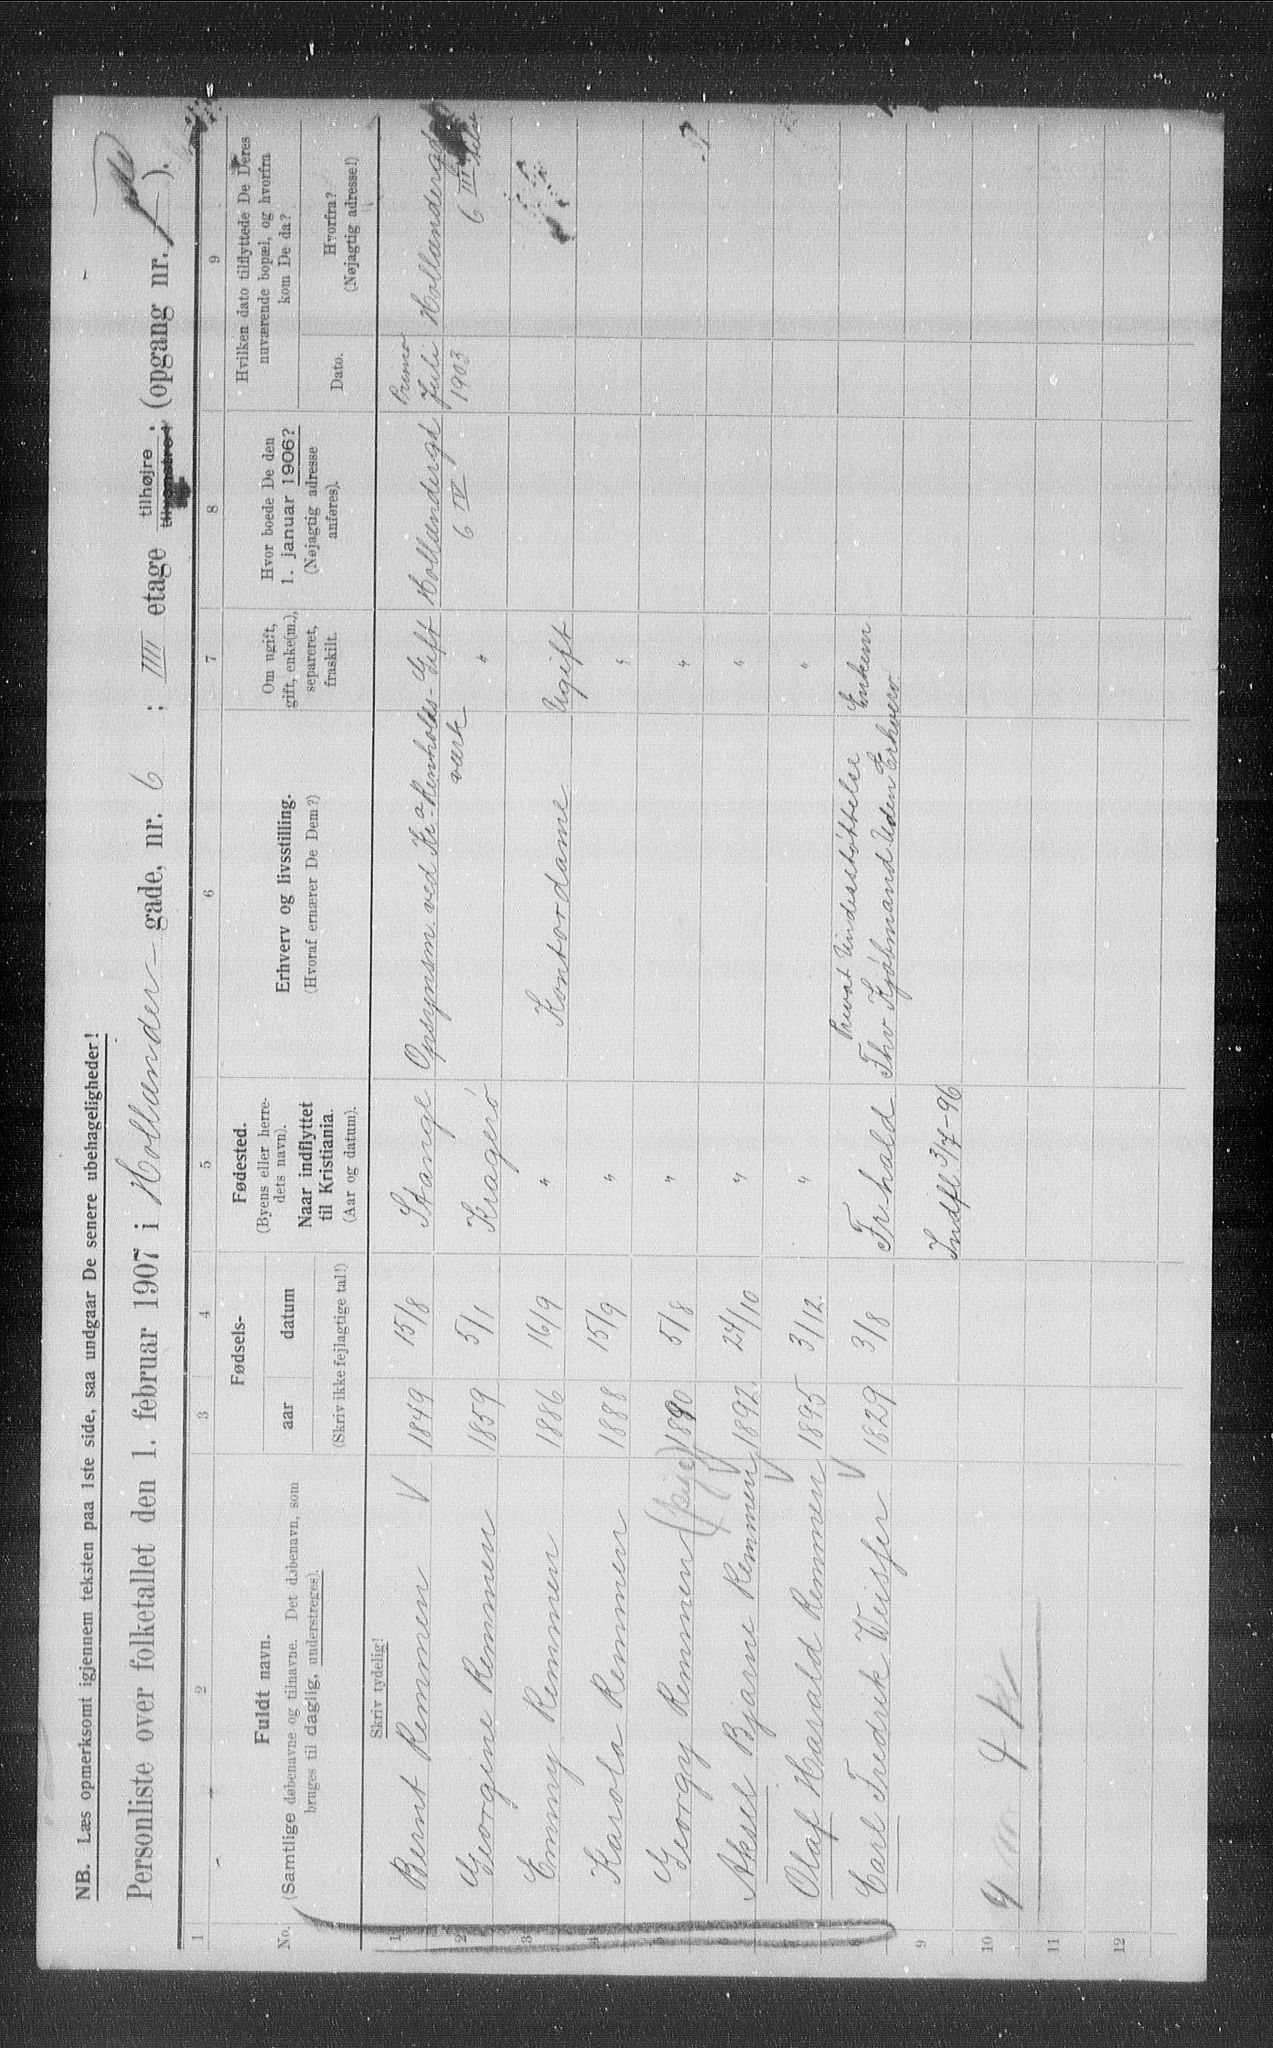 NB. Læs opmerksomt igjennem teksten paa 1ste side, saa undgaar De senere ubehageligheder!
Personliste over folketallet den 1. februar 1907 i Hollænder-gade, nr. 6 ; IIII etage tilhøjre ; tilvenstre ; (opgang nr. ).
1 2 3 4 5 6 7 8 9
No.
Fuldt navn.
(Samtlige døbenavne og tilnavne. Det døbenavn, som
bruges til daglig, understreges).
Fødsels-
aar datum
(Skriv ikke fejlagtige tal!)
Fødested.
(Byens eller herre-
dets navn).
Naar indflyttet
til Kristiania.
(Aar og datum).
Erhverv og livsstilling.
(Hvoraf ernærer De Dem?)
Om ugift,
gift, enke(m.),
separeret,
fraskilt.
Hvor boede De den
1. januar 1906?
(Nøjagtig adresse
anføres).
Hvilken dato tilflyttede De Deres
nuværende bopæl, og hvorfra
kom De da?
Dato.
Hvorfra?
(Nøjagtig adresse!)
Skriv tydelig!
1 Bernt Remmen V 1849 15/8 Stange Opsynsm. ved Kr-a Renholds-værk Gift Hollændergd 6 IV Primo Juli 1903 Hollændergd 6 III
2 Georgine Remmen 1859 5/1 Kragerö "
3 Emmy Remmen 1886 16/9 " Kontordame Ugift
4 Karola Remmen 1888 15/9 " "
5 Georgy Remmen (pige) 1890 5/8 " "
6 Aksel Bjarne Remmen V 1892 24/10 " "
7 Olaf Harald Remmen V 1895 3/12. " "
8 Carl Fredrik Weisser V 1829 3/8 Frhald Privat Understøttelse Fhv Kjøbmand Uden Erhverv Enkem
Indfl 3/7-96
9
10 4 4 k
11
12